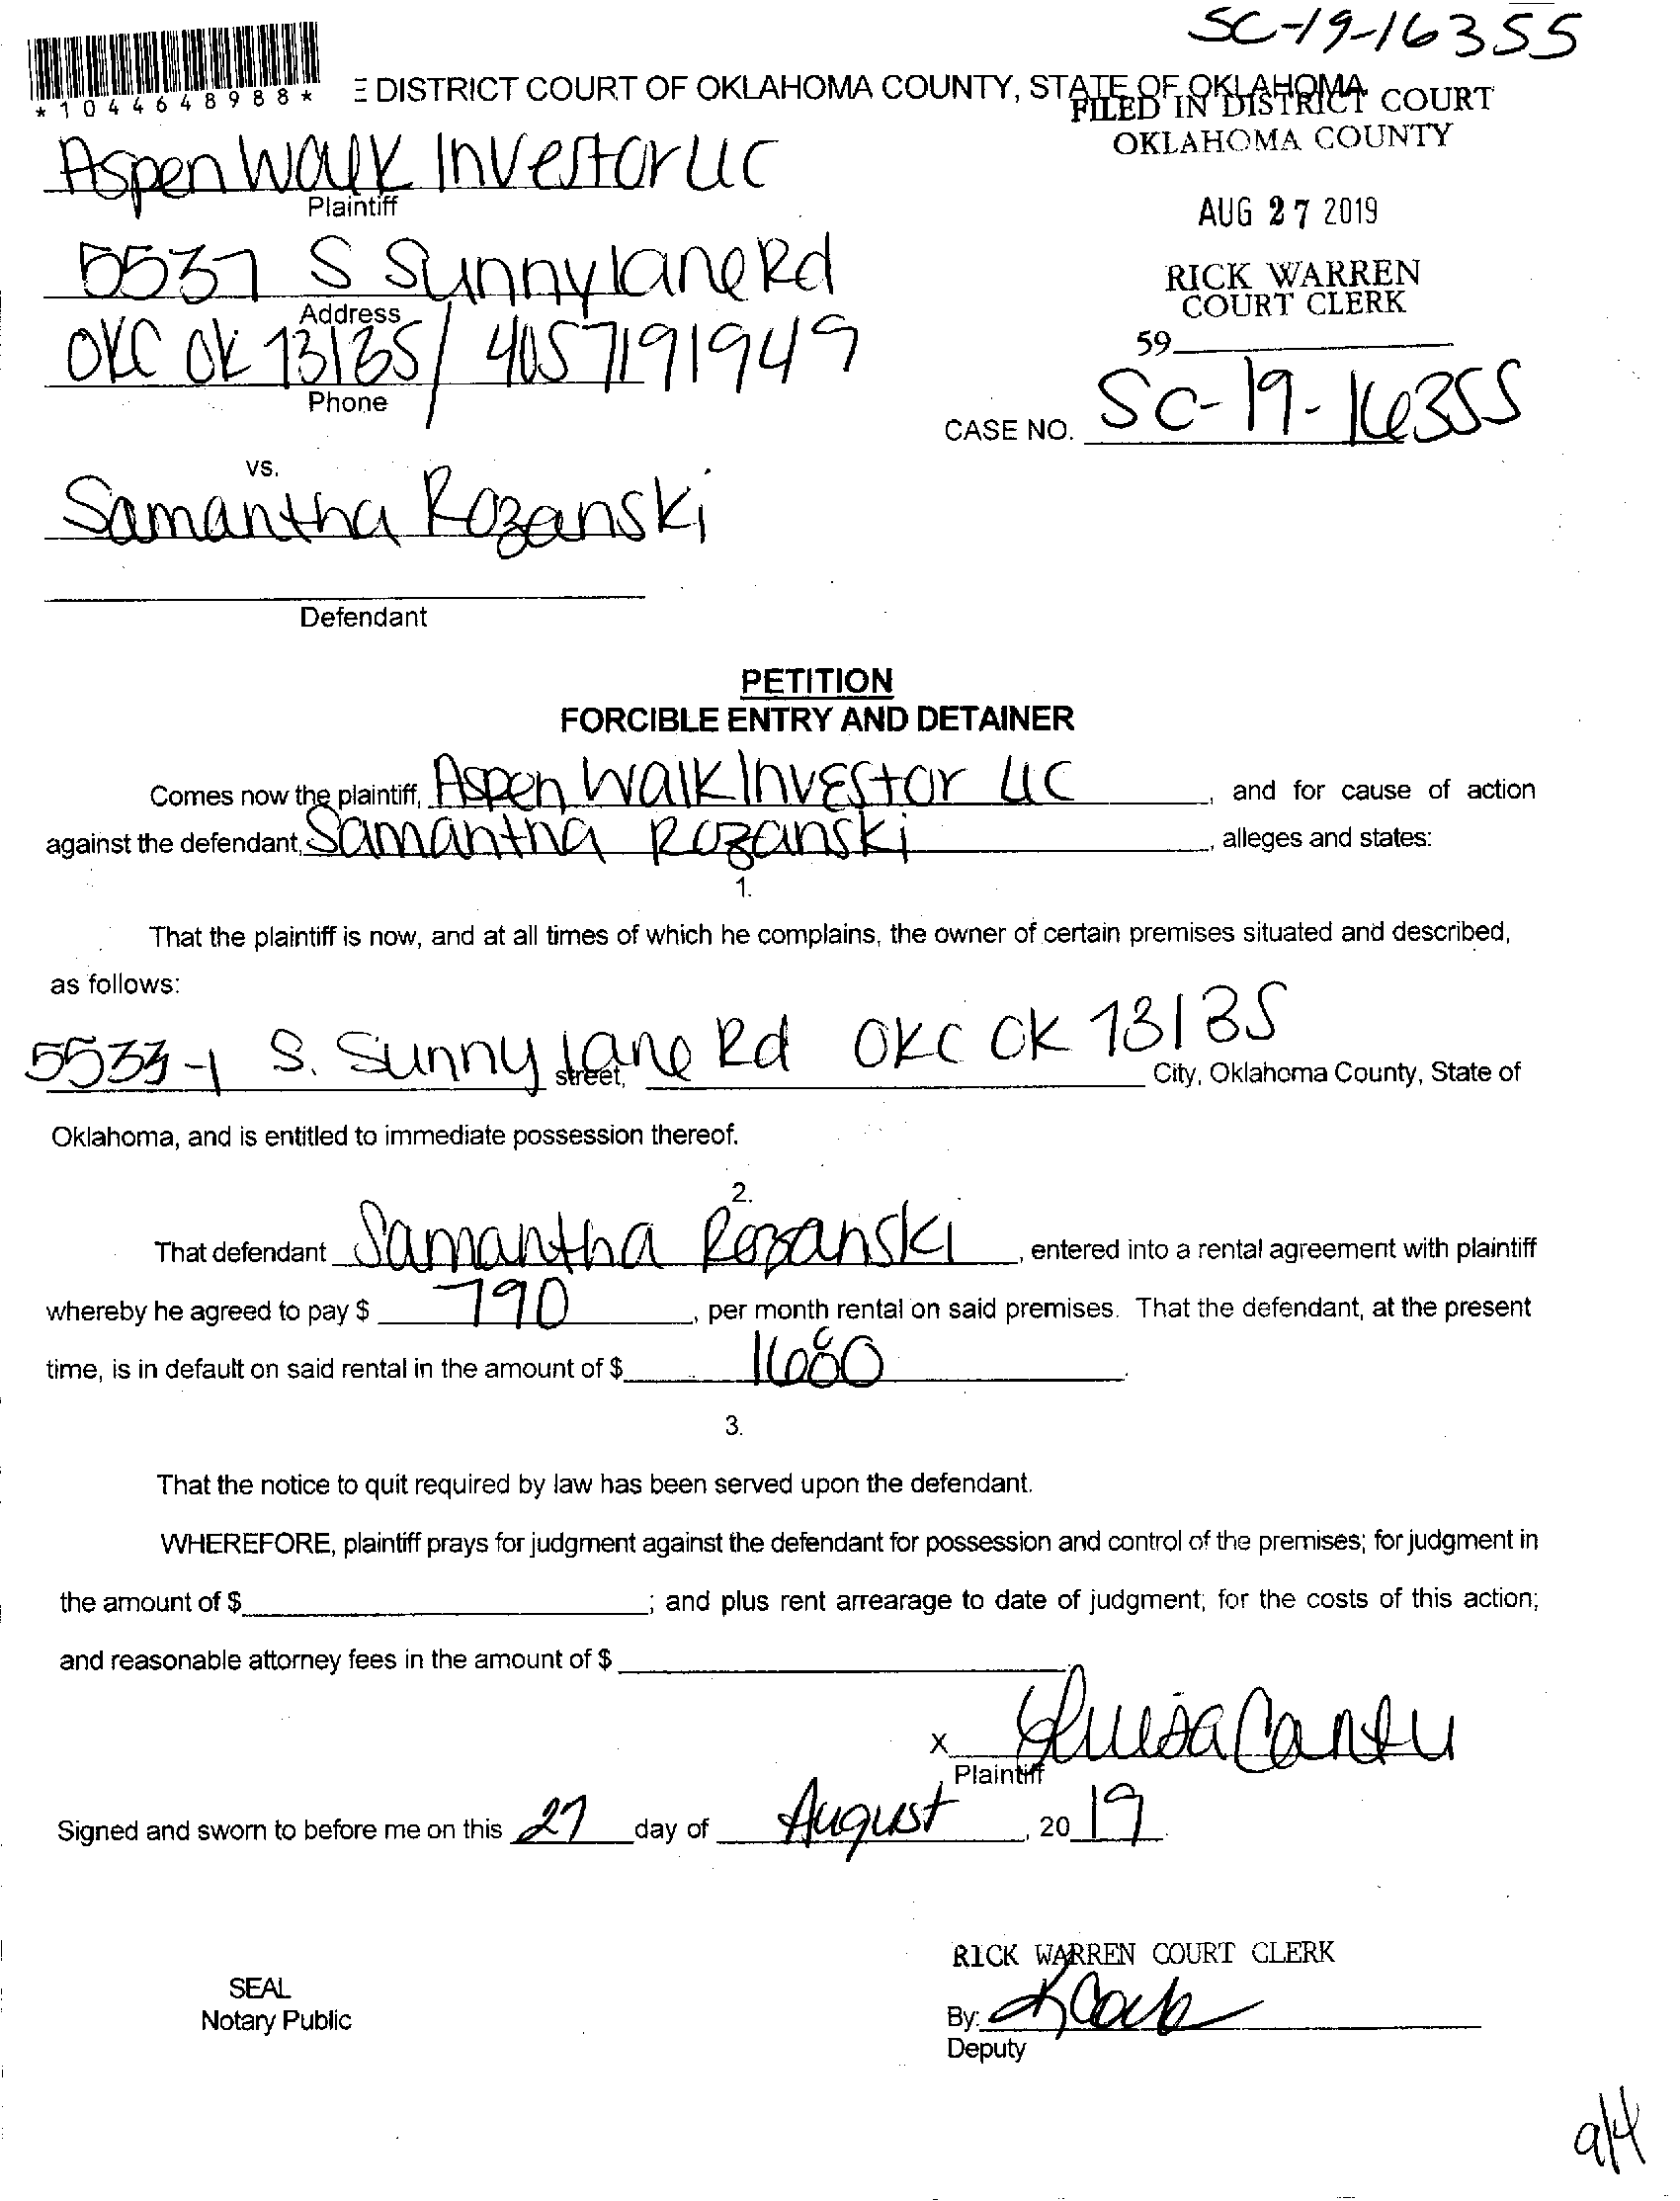 SC-19-16355
*1044648988*
E DISTRICT COURT OF OKLAHOMA COUNTY, STATE OF OKLAHOMA
FILED IN DISTRICT COURT
OKLAHOMA COUNTY
Aspen Walk Investor LLC
Plaintiff
AUG 27 2019
5537 S Sunnylane Rd
Address
RICK WARREN
COURT CLERK
OKC OK 73135 / 405 7191949
Phone
59
CASE NO. SC-19-16355
vs.
Samantha Rozanski
Defendant
PETITION
FORCIBLE ENTRY AND DETAINER
Comes now the plaintiff, Aspen Walk Investor LLC, and for cause of action
against the defendant, Samantha Rozanski, alleges and states:
1.
That the plaintiff is now, and at all times of which he complains, the owner of certain premises situated and described,
as follows:
5533-1 S. Sunnylane Rd OKC OK 73135
street, City, Oklahoma County, State of
Oklahoma, and is entitled to immediate possession thereof.
2.
That defendant Samantha Rozanski, entered into a rental agreement with plaintiff
whereby he agreed to pay $ 790, per month rental on said premises. That the defendant, at the present
time, is in default on said rental in the amount of $ 1680.
3.
That the notice to quit required by law has been served upon the defendant.
WHEREFORE, plaintiff prays for judgment against the defendant for possession and control of the premises; for judgment in
the amount of $ ; and plus rent arrearage to date of judgment; for the costs of this action;
and reasonable attorney fees in the amount of $
X Cantu
Plaintiff
Signed and sworn to before me on this 27 day of August, 20 19.
RICK WARREN COURT CLERK
SEAL
Notary Public
By:
Deputy
9/4